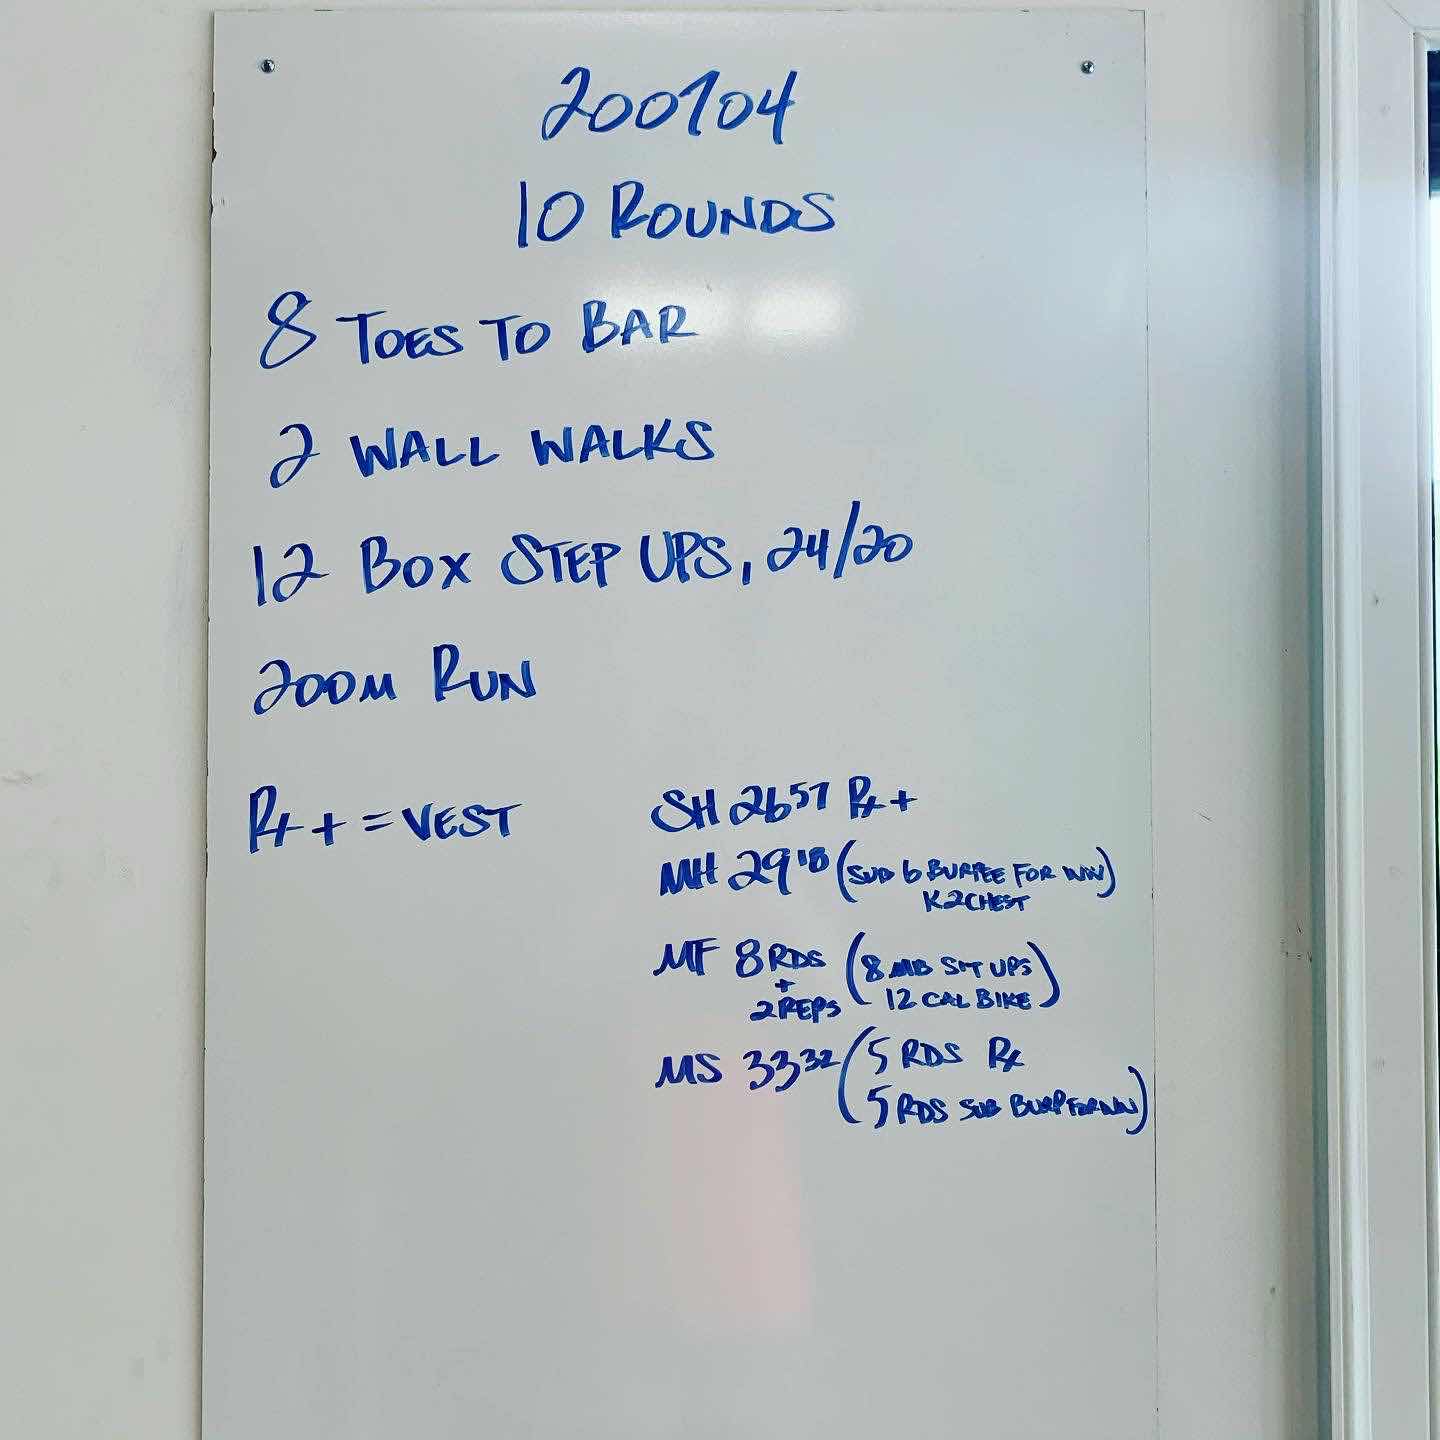 200704
10 ROUNDS
8 TOES TO BAR
2 WALL WALKS
12 BOX STEP UPS, 24/20
200M RUN
RX + = VEST
SH 26 57 RX +
MH 29 18 (SUB 6 BURPEE FOR WW)
K2CHEST
MF 8 RDS + 2 REPS (8 MB SIT UPS
12 CAL BIKE)
MS 33 32 (5 RDS RX
5 RDS SUB BURP FOR WW)